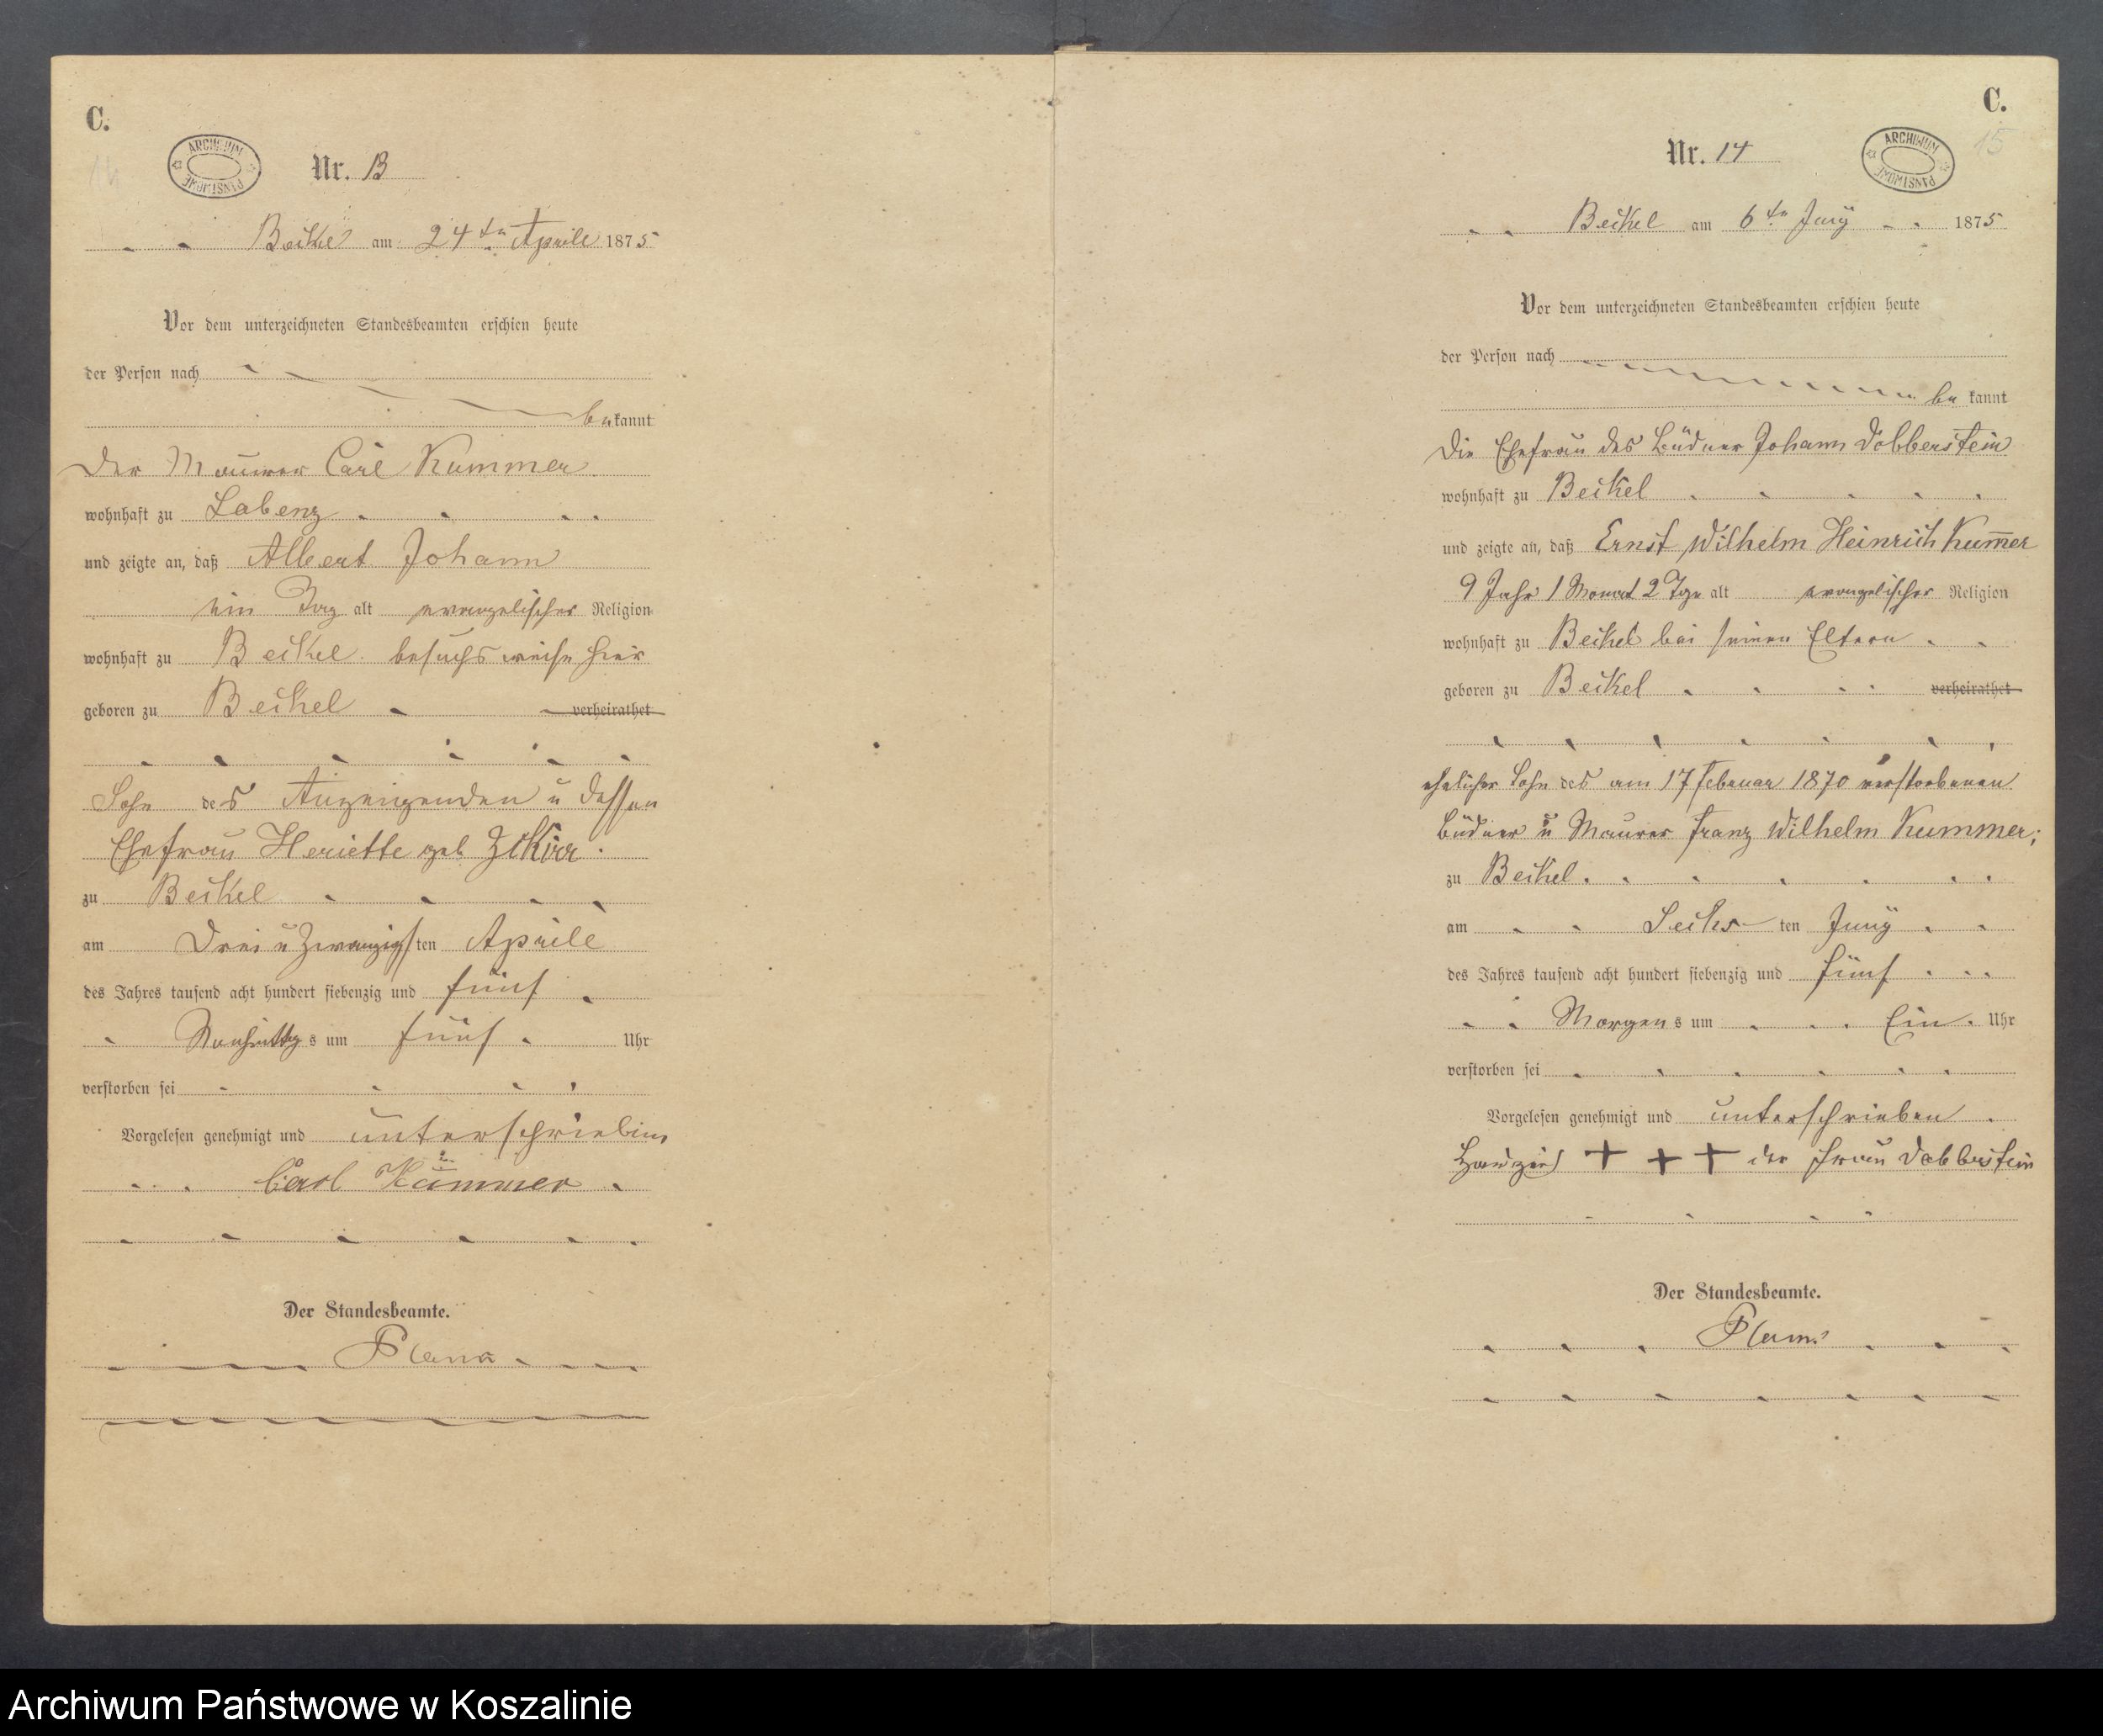 C.
ARCHIWUM PAŃSTWOWE
Nr. 13
Beikel am 24ten Aprile 1875
Vor dem unterzeichneten Standesbeamten erschien heute
der Person nach
bekannt
Der Maurer Carl Kummer
wohnhaft zu Labenz
und zeigte an, daß Albert Johann
ein Tag alt evangelischer Religion
wohnhaft zu Beikel besuchsweise hier
geboren zu Beikel verheirathet
Sohn des Anzeigenden u dessen
Ehefrau Heriette geb
zu Beikel
am Drei u Zwanzigsten Aprile
des Jahres tausend acht hundert siebenzig und fünf
s um fünf Uhr
verstorben sei
Vorgelesen genehmigt und unterschrieben
Carl Kummer
Der Standesbeamte.
C.
15
ARCHIWUM PAŃSTWOWE
Nr. 14
Beikel am 6ten Juny 1875
Vor dem unterzeichneten Standesbeamten erschien heute
der Person nach
bekannt
Die Ehefrau des Büdner Johann Dobberstein
wohnhaft zu Beikel
und zeigte an, daß Ernst Wilhelm Heinrich Kum̅er
9 Jahr 1 Monat 2 Tage alt evangelischer Religion
wohnhaft zu Beikel bei seinen Eltern
geboren zu Beikel verheirathet
ehelicher Sohn des am 17 Februar 1870 verstorbenen
Büdner u Maurer Franz Wilhelm Kummer;
zu Beikel
am Sechsten Juny
des Jahres tausend acht hundert siebenzig und fünf
Morgens um Ein Uhr
verstorben sei
Vorgelesen genehmigt und unterschrieben
+ + + der Frau Dobberstein
Der Standesbeamte.
Archiwum Państwowe w Koszalinie